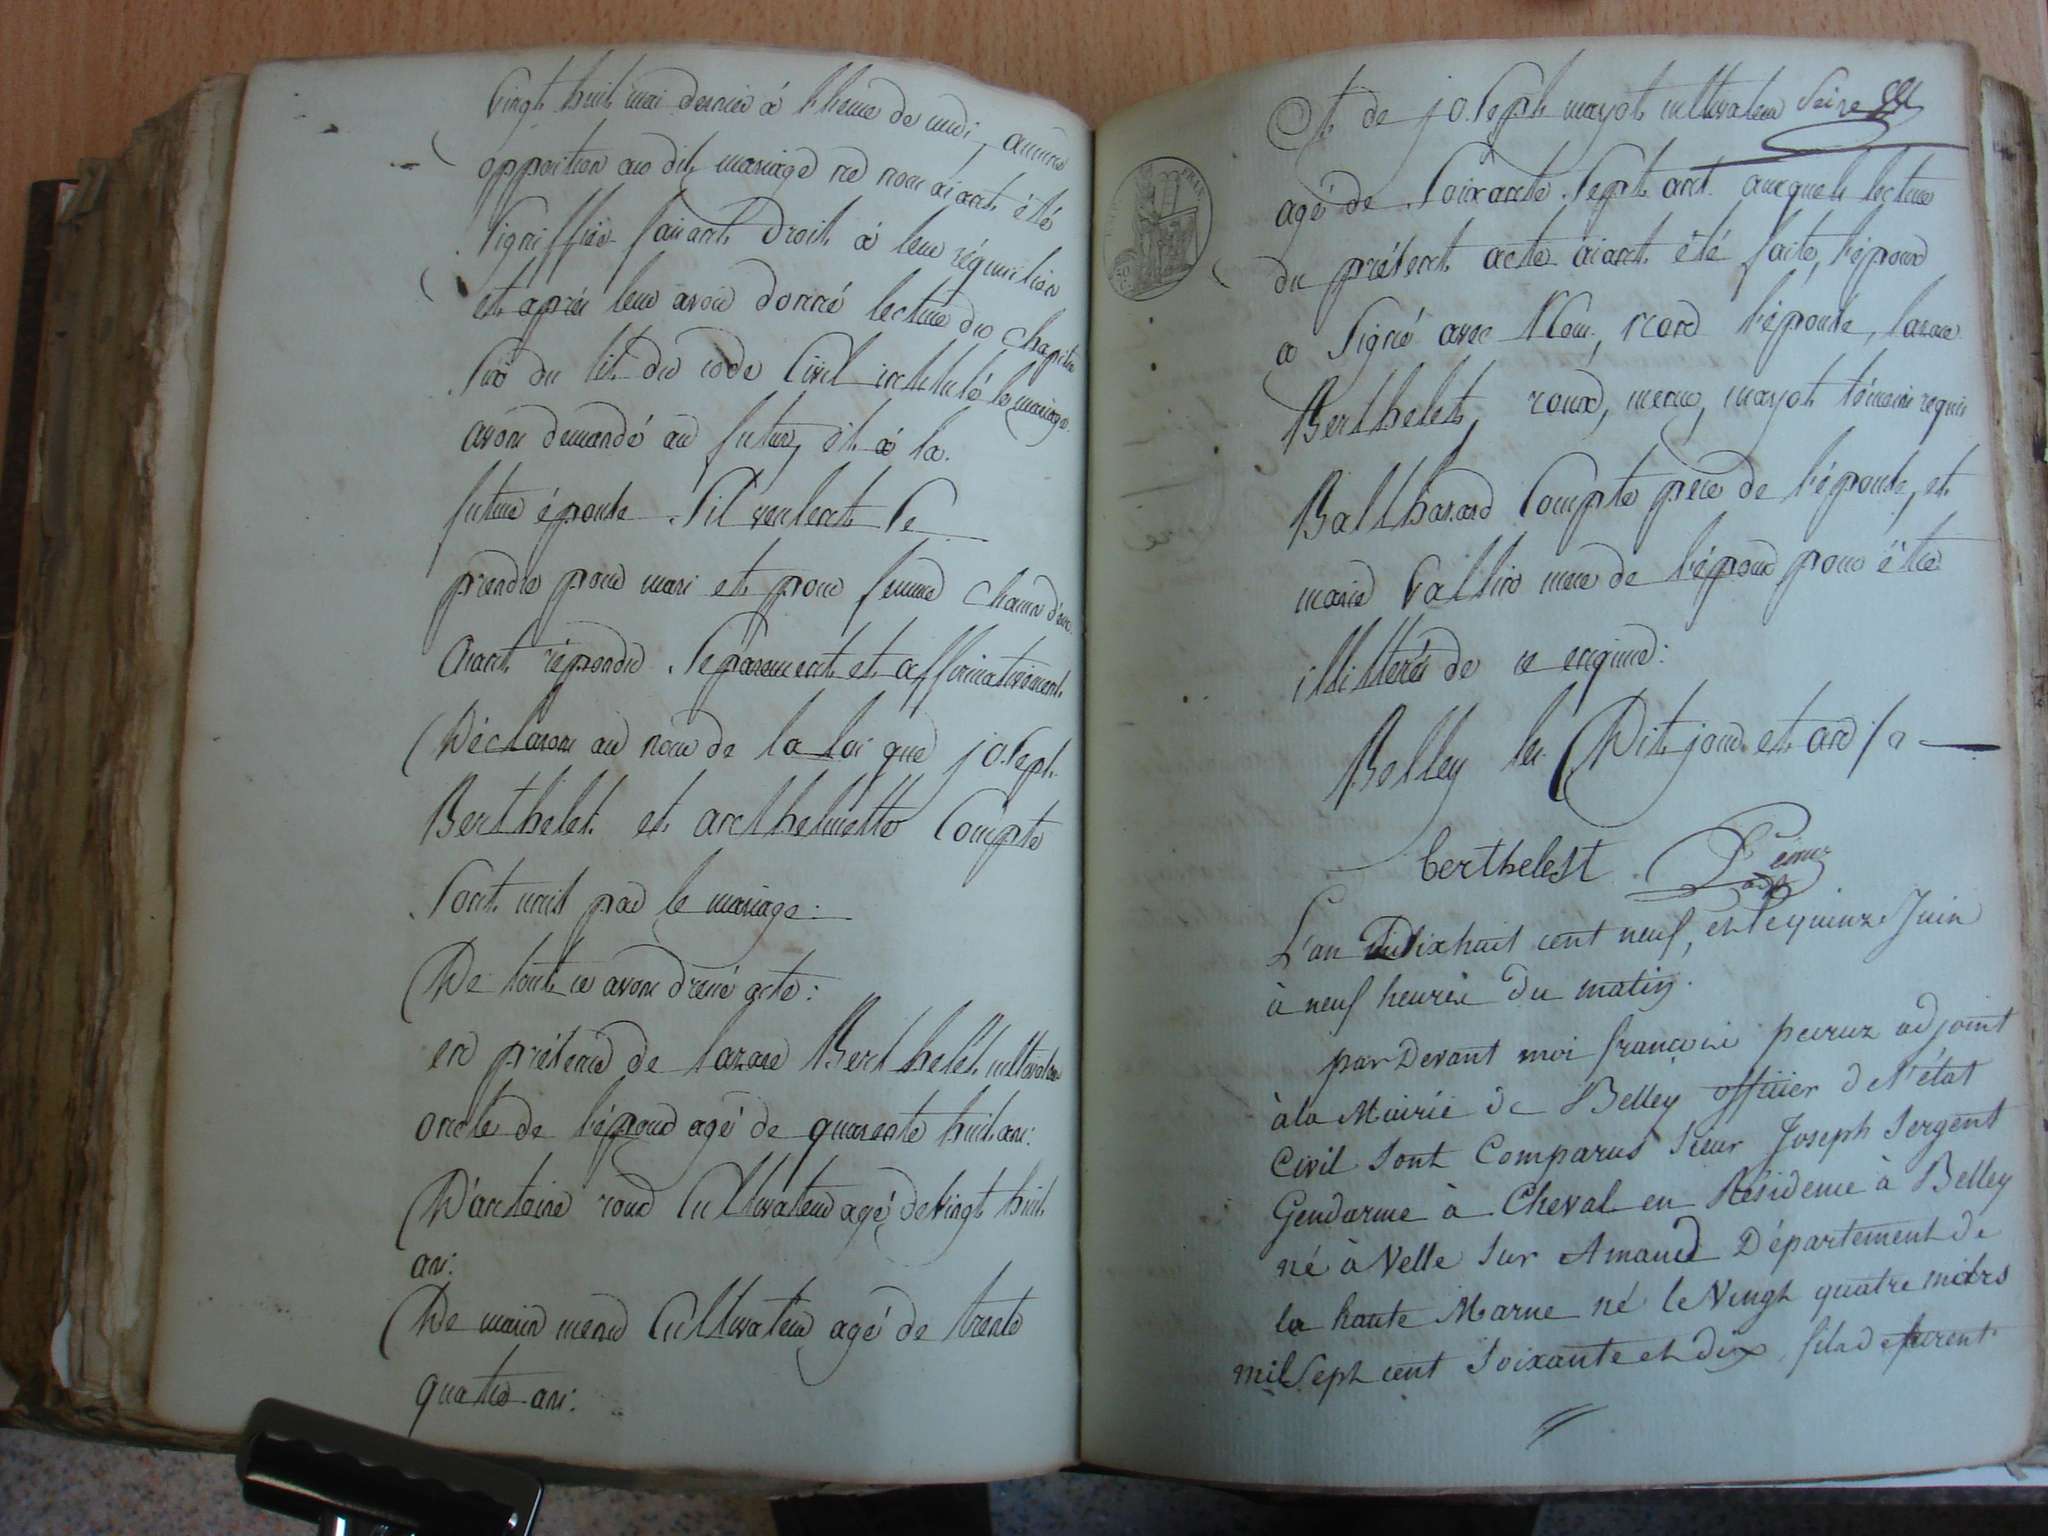 Vingt huit mai dernier à l'heure de midi, aucune
opposition au dit mariage ne nous aiant été
signiffiée faisant droit à leur réquisition
et après leur avoir donné lecture du chapitre
six du tit. du code Civil intitulé le mariage.
avons demandé au futur, et à la
future épouse s'il veulent se
prendre pour mari et pour femme chacun d'eux
aiant répondu séparement et affirmativement.
Déclarons au nom de la loi que joseph
Berthelet et anthelmette Compte
sont unit par le mariage :
De tout ce avons dressé acte :
en présence de Berthelet cultivateur
oncle de l'époux agé de quarante huit ans :
D'antoine roux Cultivateur agé de vingt huit
ans :
De marin menu Cultivateur agé de trente
quatre ans :
Et de joseph mayot cultivateur
agé de soixante sept ans auxquels lecture
du présent acte aiant été faite, l'époux
a signé avec Nous, non l'épouse,
Berthelet, roux, menu, mayot témoins requis
Balthazard Compte père de l'épouse, et
marie mere de l'époux pour être
illitterés de ce enquis :
Belley les Dit jour et an
berthelest Peiruz
L'an dixhuit cent neuf, et le quinze Juin
à neuf heures du matin.
par Devant moi françois peiruz adjoint
à la Mairie de Belley officier de l'état
Civil sont Comparus sieur Joseph Sergent
Gendarme à Cheval en Résidence à Belley
né à Velle sur Amance Département de
la haute Marne né le Vingt quatre mars
mil sept cent soixante et dix, fils de